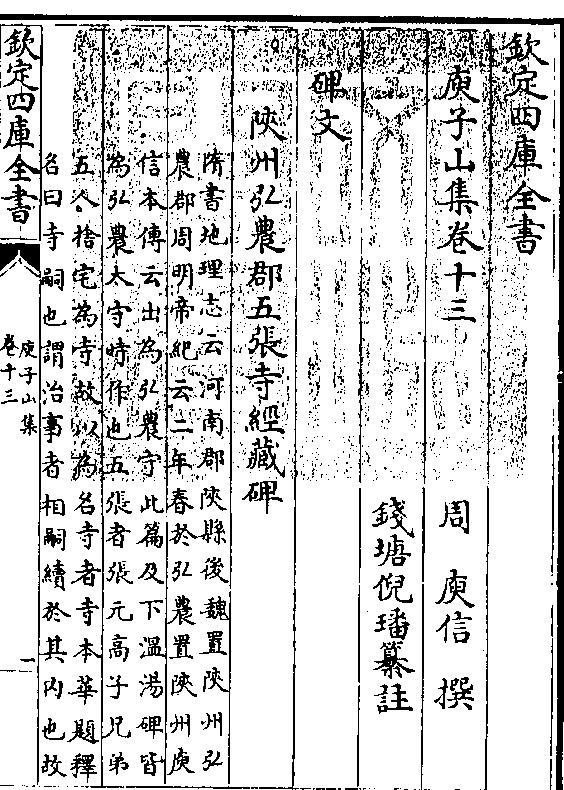 欽定四庫全書
庾子山集卷十三
周 庾信 撰
錢塘倪璠纂註
碑文
陝州弘農郡五張寺經藏碑
隋書地理志云河南郡陝縣後魏置陝州弘
農郡周明帝紀云二年春於弘農置陝州庾
信本傳云出為弘農守此篇及下溫湯碑皆
為弘農太守時作也五張者張元高子兄弟
五人捨宅為寺故以為名寺者寺本華題釋
名曰寺嗣也謂治事者相嗣續於其内也故
欽定四庫全書
庾子山集
卷十三
一